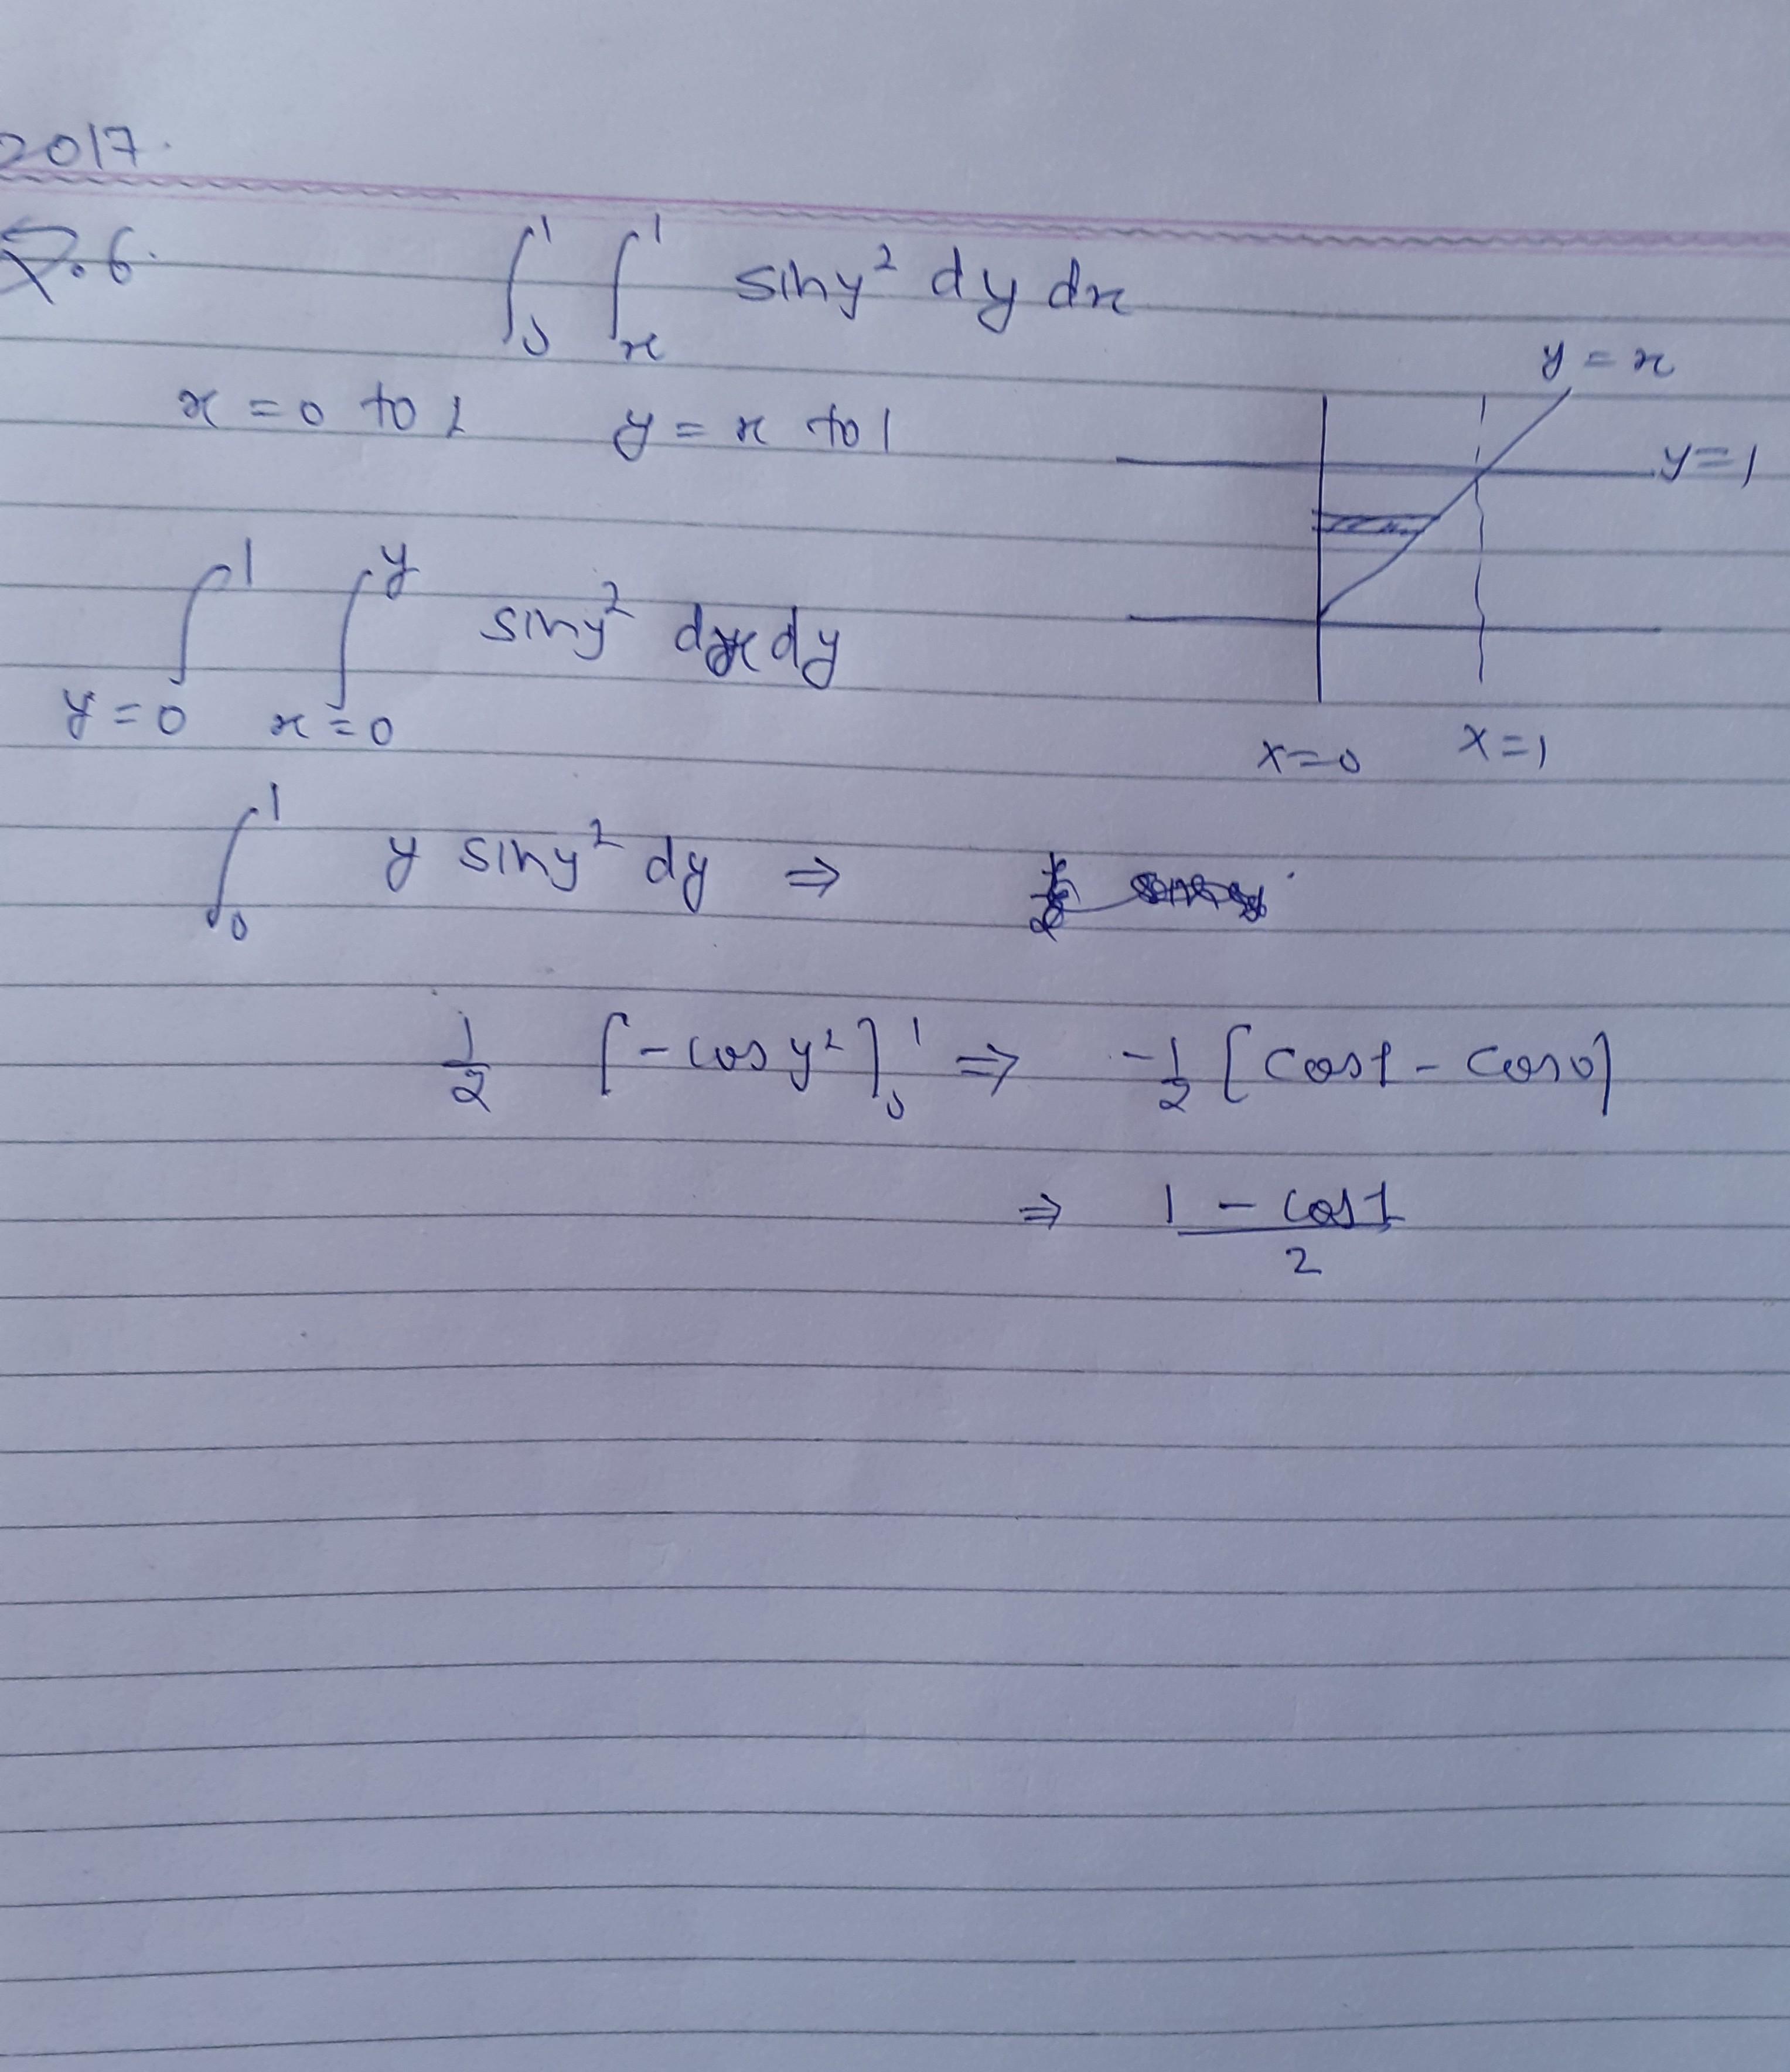 2017.
Q.6. ∫₀¹ ∫ₓ¹ siny² dy dx
x = 0 to 1 y = x to 1
y = x
y = 1
x=0 x=1
∫_{y=0}^{1} ∫_{x=0}^{y} siny² dx dy
∫₀¹ y siny² dy ⇒
1/2 [-cos y²]₀¹ ⇒ -1/2 [cos1 - cos0]
⇒ 1 - cos1 / 2